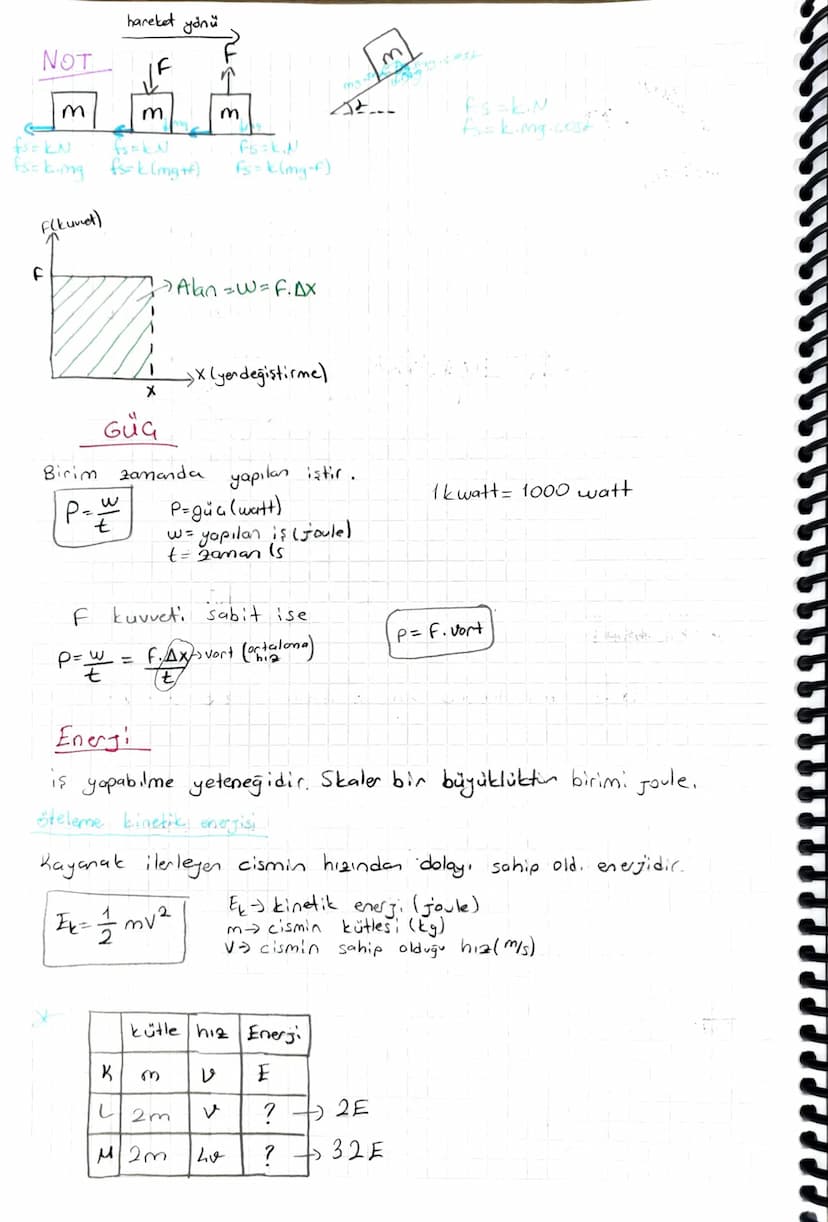 hareket yönü
NOT
F
F
m
m
m
m
fs=k.N
fs=k.N
fs=k.N
fs=k.N
fs=k.mg
fs=k(mg+f)
fs=k(mg-f)
fs=k.mg.cosα
F(kuvvet)
F
Alan=W=F.Δx
x
x(yerdeğiştirme)
GÜÇ
Birim zamanda yapılan iştir.
P=w/t
P=güç(watt)
1kwatt= 1000 watt
w= yapılan iş(joule)
t= zaman (s
F kuvveti sabit ise
P=w/t = F.Δx/t → vort (ortalama hız)
P= F.vort
Enerji
iş yapabilme yeteneğidir. Skaler bir büyüklüktür birimi joule.
öteleme kinetik enerjisi
Kayarak ilerleyen cismin hızından dolayı sahip old. enerjidir.
Ek=1/2 mv²
Ek→ kinetik enerji (joule)
m→ cismin kütlesi (kg)
v→ cismin sahip olduğu hız(m/s)
kütle hız Enerji
K m v E
L 2m v ? → 2E
M 2m 4v ? → 32E